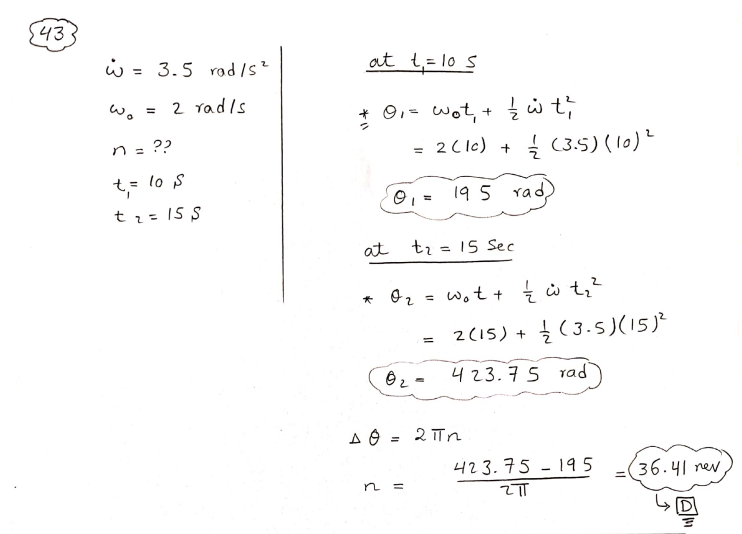 43
ẇ = 3.5 rad/s²
w₀ = 2 rad/s
n = ??
t₁ = 10 S
t₂ = 15 S
at t₁ = 10 S
* θ₁ = w₀t₁ + 1/2 ẇ t₁²
= 2(10) + 1/2 (3.5)(10)²
θ₁ = 195 rad
at t₂ = 15 Sec
* θ₂ = w₀t + 1/2 ẇ t₂²
= 2(15) + 1/2 (3.5)(15)²
θ₂ = 423.75 rad
Δθ = 2πn
n = (423.75 - 195)/2π = 36.41 rev
↳ D